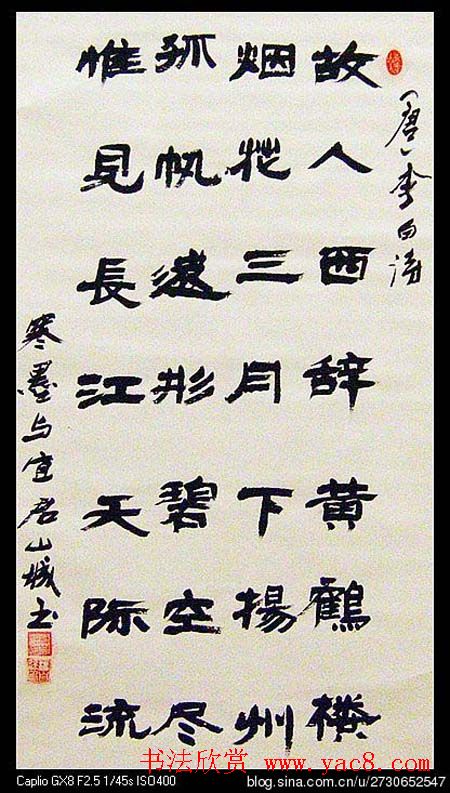 （唐）李白诗
故人西辞黄鶴楼
烟花三月下揚州
孤帆遠形碧空尽
惟見長江天际流
寒墨与宜君山城书
书法欣赏 www.yac8.com
Caplio GX8 F2.5 1/45s ISO400
blog.sina.com.cn/u/2730652547